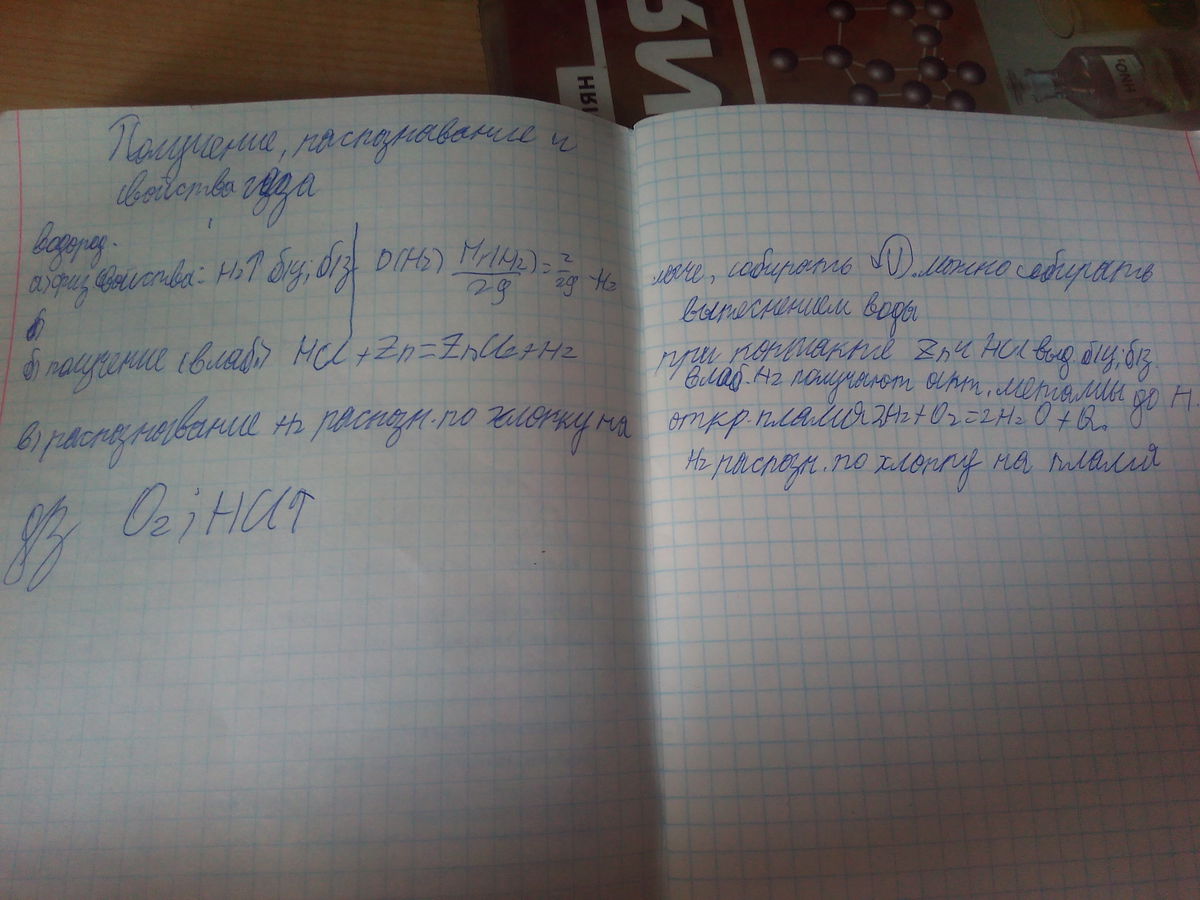 Получение, распознавание и
свойства газа
водород.
а) физ свойства: H₂↑ б\ц; б\з
D(H₂) Mr(H₂)/29 = 2/29 H₂
б
б) получение (в лаб.) HCl + Zn = ZnCl₂ + H₂
в) распознование H₂ распозн. по хлопку на
дз O₂; HCl↑
легче, собирать можно собирать
вытеснением воды
при контакте Zn и HCl выд. б\ц; б\з.
в лаб. H₂ получают акт. металлы до H.
откр. пламя 2H₂ + O₂ = 2H₂O + Q.
H₂ распозн. по хлопку на пламя
HNO₃